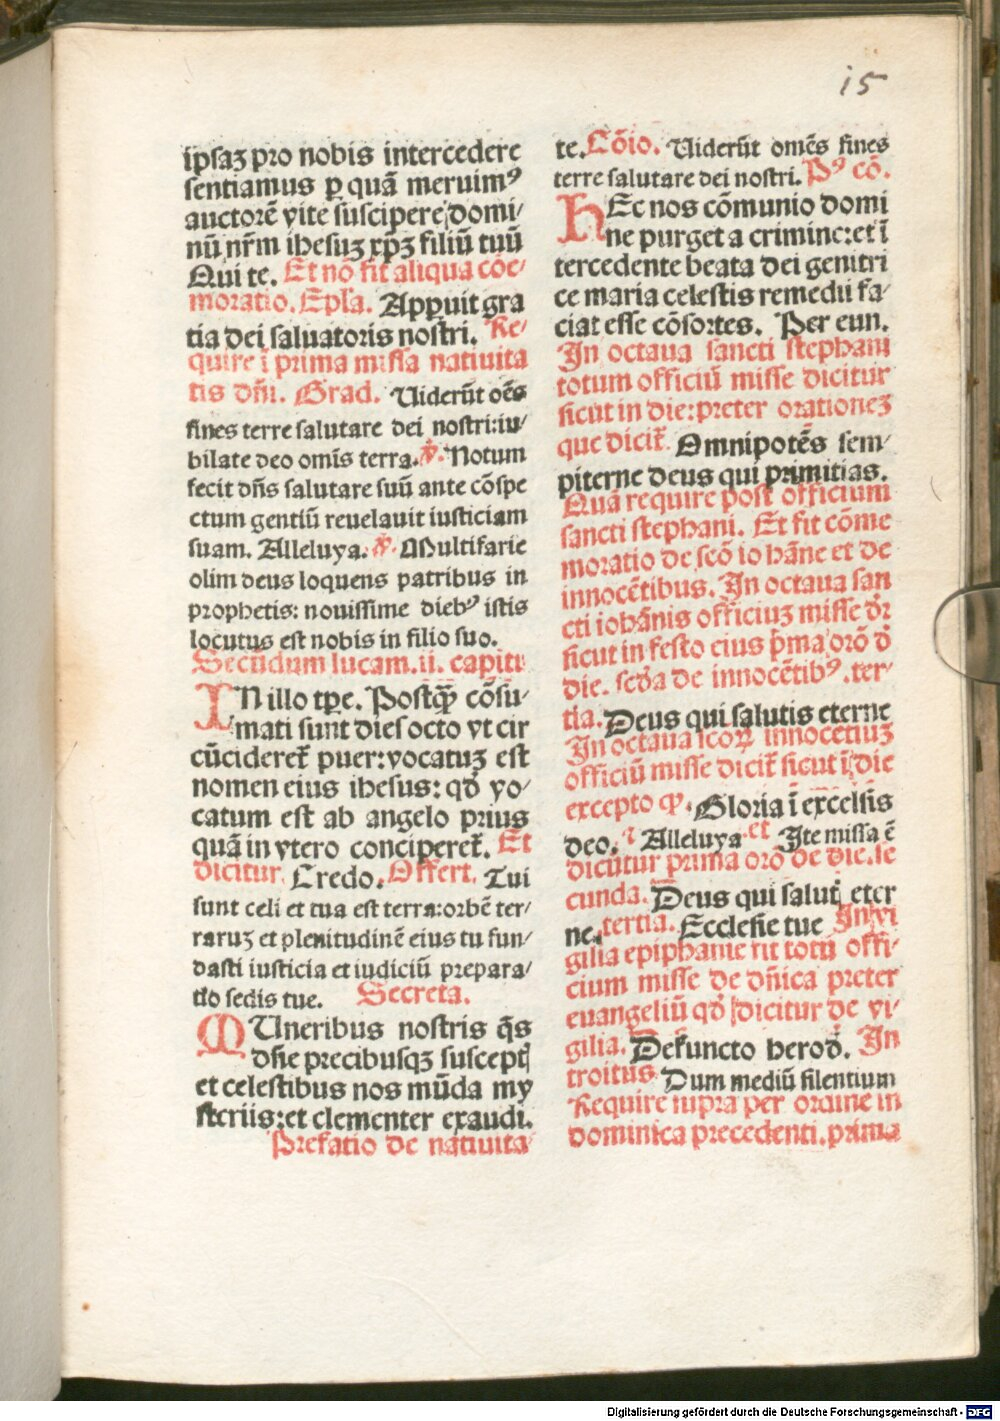 15
ipsaʒ pro nobis intercedere
sentiamus ꝑ quā meruimꝰ
auctorē vite suscipere domi/
nū nr̄m ihesuʒ xp̄ʒ filiū tuū
Qui te. Et nō fit aliqua cōe/
moratio. Ep̄la. Apparuit gra
tia dei saluatoris nostri. Re/
quire ī prima missa natiuita
tis dn̄i. Grad. Uiderūt oēs
fines terre salutare dei nostri:iu/
bilate deo omīs terra. ℣. Notum
fecit dn̄s salutare suū ante cōspe
ctum gentiū reuelauit iusticiam
suam. Alleluya. ℣. Multifarie
olim deus loquens patribus in
prophetis: nouissime diebꝰ istis
locutus est nobis in filio suo.
Secūdum lucam.ii. capitu
IN illo tꝑe. Postꝙ̄ cōsu/
mati sunt dies octo vt cir
cūcidereť puer:vocatuʒ est
nomen eius ihesus: qđ vo/
catum est ab angelo prius
quā in vtero concipereť. Et
dicitur. Credo. Offert. Tui
sunt celi et tua est terra:orbē ter/
raruʒ et plenitudinē eius tu fun/
dasti iusticia et iudiciū prepara/
tio sedis tue. Secreta.
MUneribus nostris q̄s
dn̄e precibusqʒ susceptꝭ
et celestibus nos mūda my
steriis:et clementer exaudi.
Prefatio de natiuita
te. Cōio. Uiderūt omēs fines
terre salutare dei nostri. Pꝰ cō.
HEc nos cōmunio domi
ne purget a crimine:et ī
tercedente beata dei genitri
ce maria celestis remedii fa/
ciat esse cōsortes. Per eun.
In octaua sancti stephani
totum officiū misse dicitur
sicut in die:preter orationeʒ
que diciť. Omnipotēs sem/
piterne deus qui primitias.
Quā require post officium
sancti stephani. Et fit cōme
moratio de scō iohāne et de
innocētibus. In octaua san
cti iohānis officiuʒ misse dr̄
sicut in festo eius p̄ma orō đ
die. scđa de innocētibꝰ. ter/
tia. Deus qui salutis eterne
In octaua scoꝝ innocētiuʒ
officiū misse diciť sicut ī die
excepto ꝙ. Gloria ī excelsis
deo. ⁊ Alleluya et Ite missa ē
dicūtur prima orō de die. se
cunda. Deus qui saluť eter
ne. tertia. Ecclesie tue In vi
gilia epiphanie fit totū offi/
cium misse de dn̄ica preter
euangeliū qđ dicitur de vi/
gilia. Defuncto herođ. In
troitus. Dum mediū silentium
Require supra per ordine in
dominica precedenti. prima
Digitalisierung gefördert durch die Deutsche Forschungsgemeinschaft - DFG